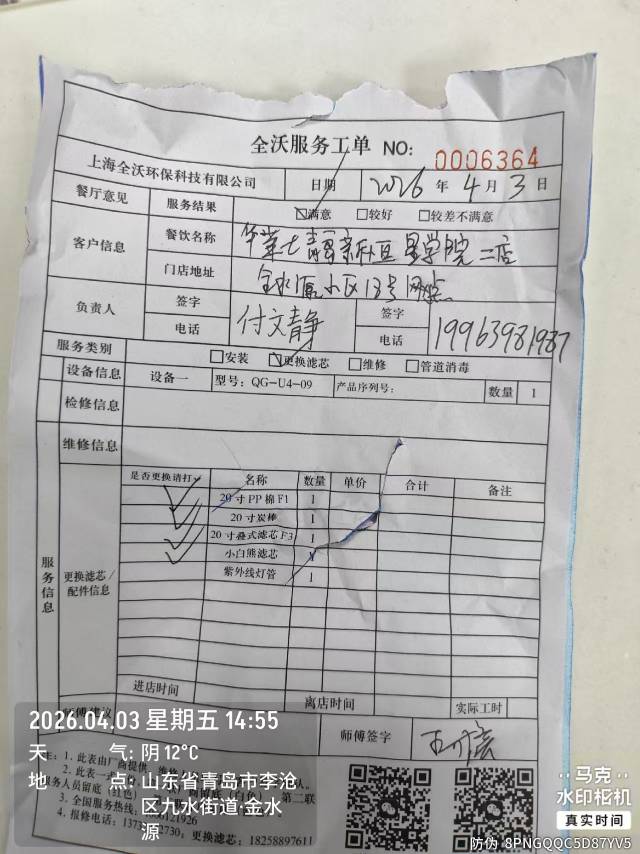 全沃服务工单 NO: 0006364
上海全沃环保科技有限公司 日期 2026 年 4 月 3 日
餐厅意见 服务结果 ☑满意 □较好 □较差不满意
客户信息 餐饮名称 华莱士青岛 星学院二店
门店地址 金水源小区13号网点
负责人 签字 付文静 签字
电话 电话 19963981987
服务类别 □安装 ☑更换滤芯 □维修 □管道消毒
设备信息 设备一 型号: QG-U4-09 产品序列号: 数量 1
检修信息
维修信息
服务信息
更换滤芯/配件信息
是否更换请打✓ 名称 数量 单价 合计 备注
✓ 20寸PP棉F1 1
✓ 20寸炭棒 1
✓ 20寸叠式滤芯F3 1
✓ 小白熊滤芯 1
紫外线灯管 1
进店时间 离店时间 实际工时
师傅建议 师傅签字
注: 1. 此表由厂商提供
2. 此表一式
服务人员留底(红色) (白色) 第二联
3. 全国服务热线: 121926
4. 报修电话: 1373 2730; 更换滤芯: 18258897611
2026.04.03 星期五 14:55
天 气: 阴 12°C
地 点: 山东省青岛市李沧
区九水街道·金水
源
马克
水印相机
真实时间
防伪 8PNGQQC5D87YV5